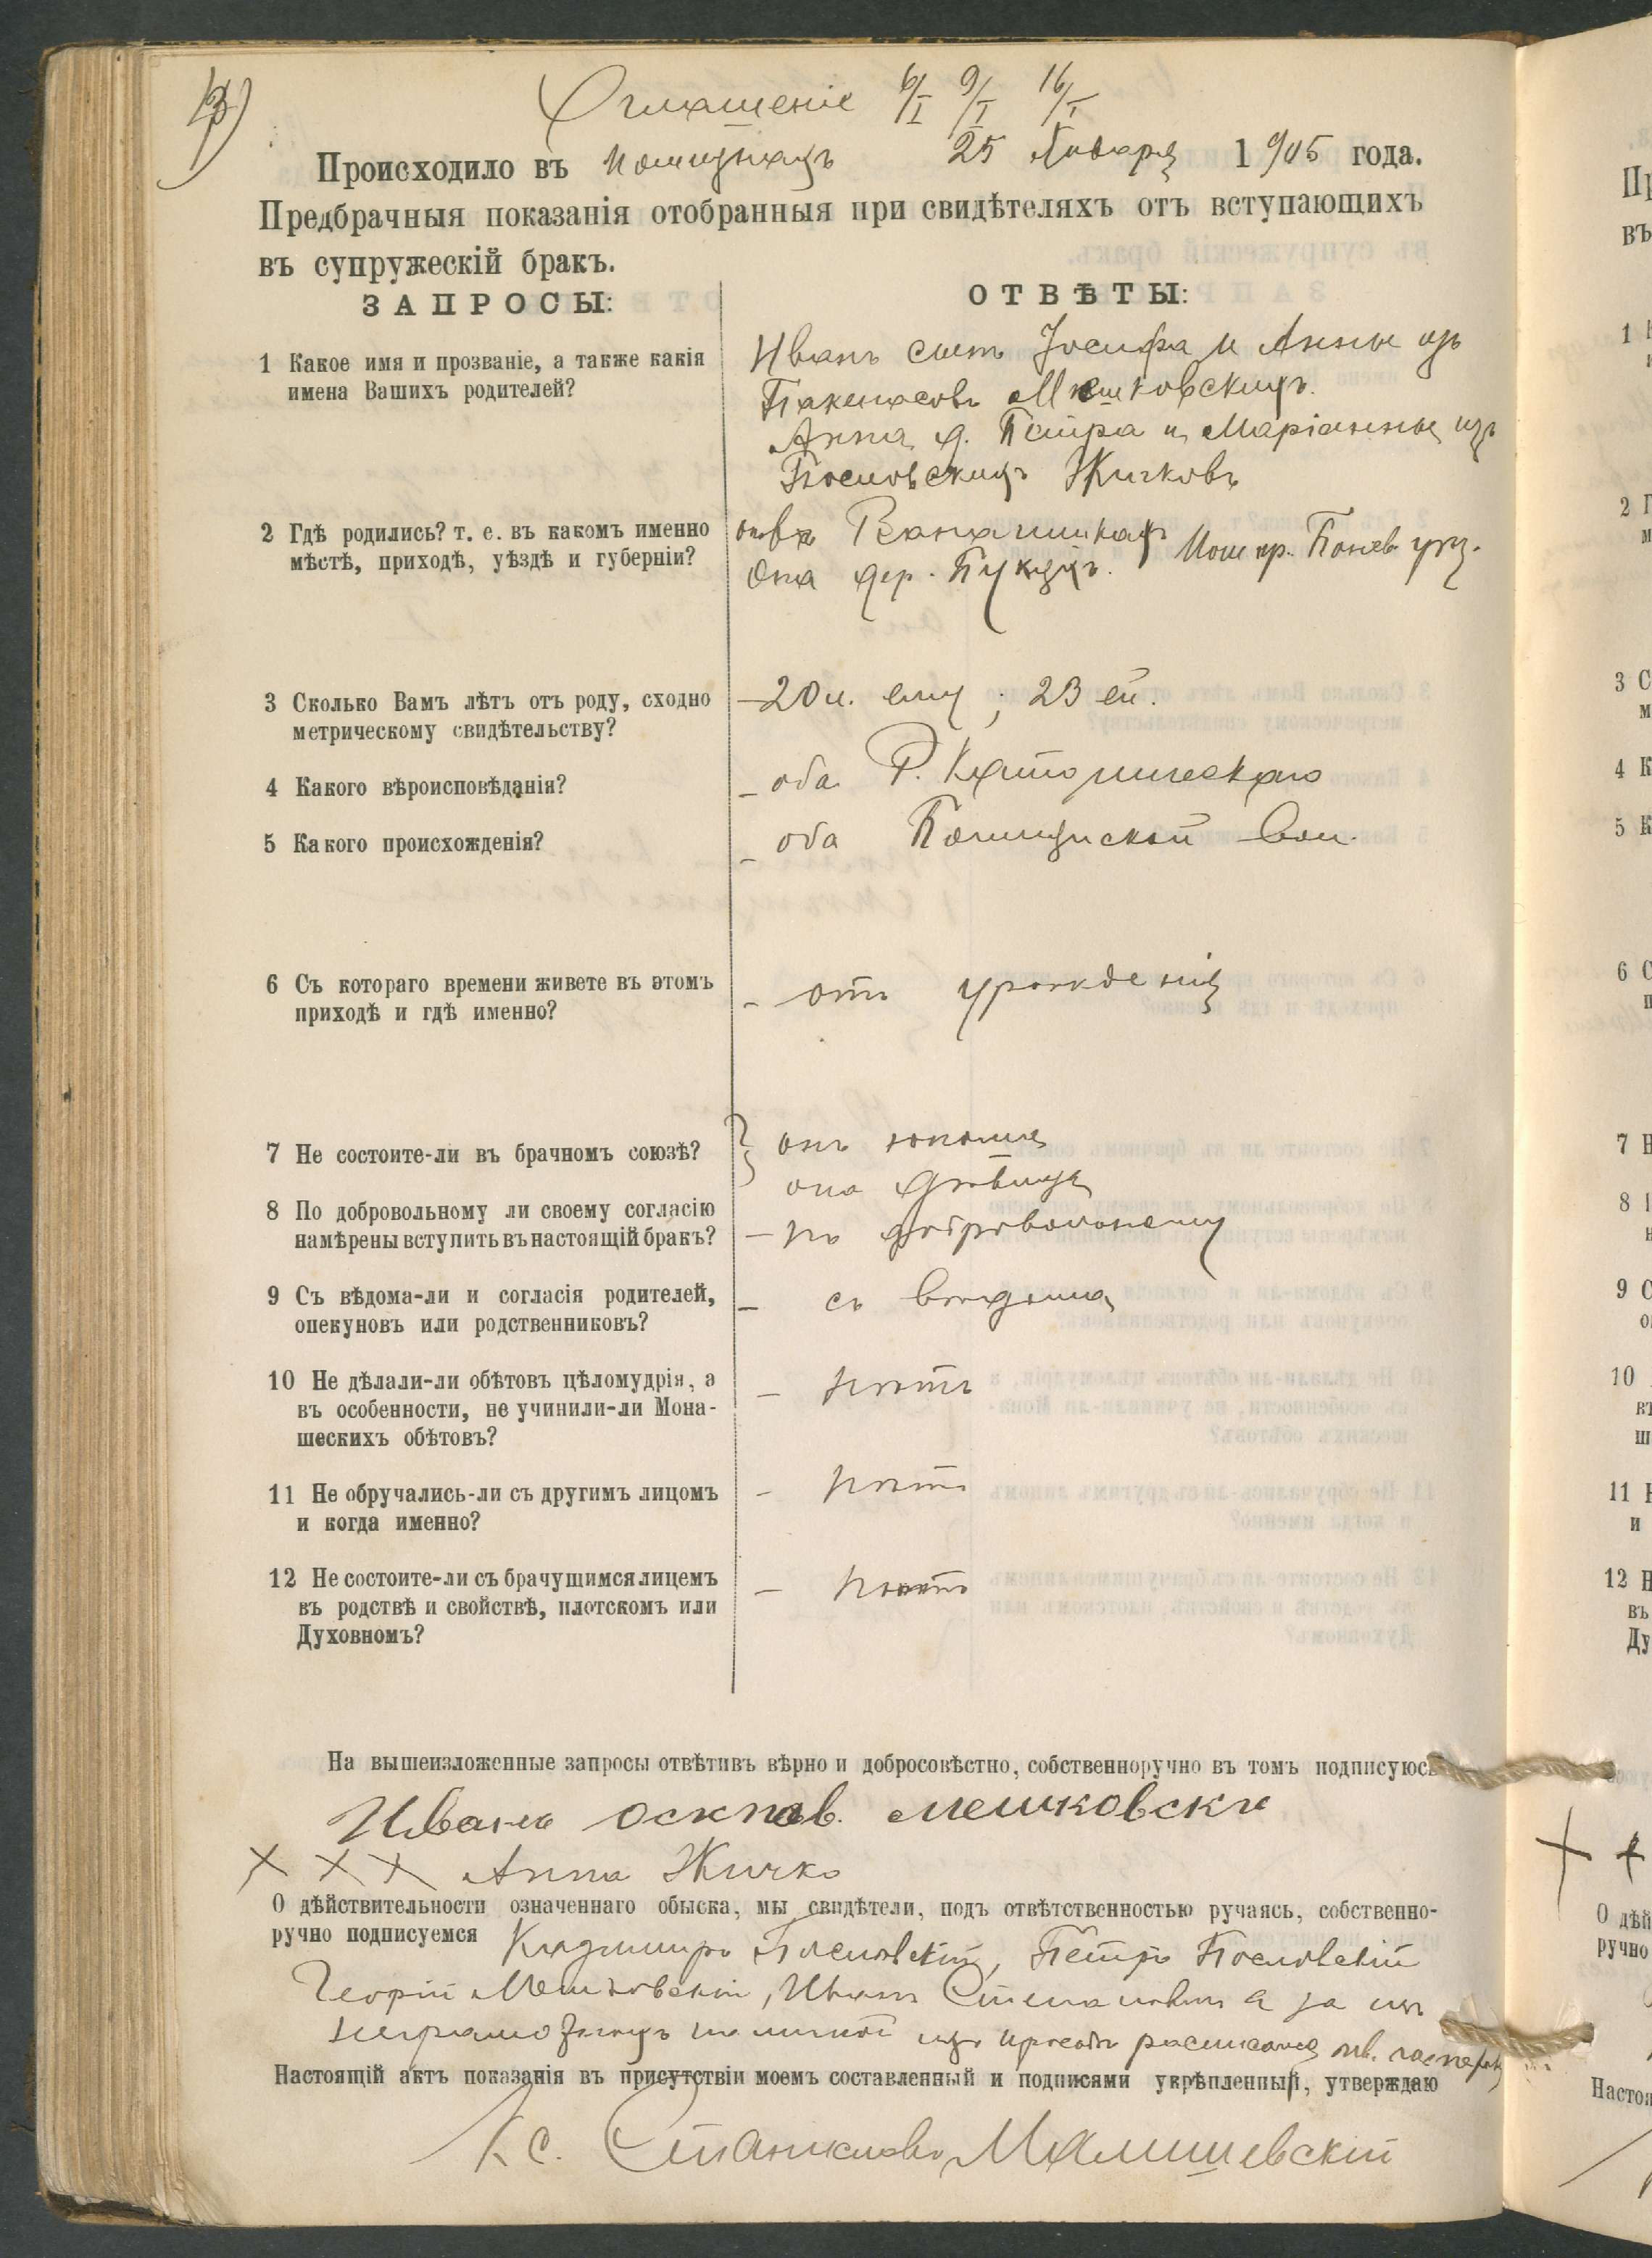 3)
Оглашеніе 6/I 9/I 16/I
Происходило въ 25 Января 1905 года.
Предбрачныя показанія отобранныя при свидѣтеляхъ отъ вступающихъ
въ супружескій бракъ.
ЗАПРОСЫ:
ОТВѢТЫ:
1 Какое имя и прозваніе, а также какія
имена Вашихъ родителей?
Иванъ сынъ Іосифа и Анны изъ
Мешковскихъ.
Анна д. Петра и Маріанны изъ
Пословскихъ Жичковъ
2 Гдѣ родились? т. е. въ какомъ именно
мѣстѣ, приходѣ, уѣздѣ и губерніи?
онъ въ
Она дер. пр. Понев. уѣз.
3 Сколько Вамъ лѣтъ отъ роду, сходно
метрическому свидѣтельству?
– 20 л. ему ; 23 ей.
4 Какого вѣроисповѣданія?
– оба Р. Католическаго
5 Какого происхожденія?
– оба вол.
6 Съ котораго времени живете въ этомъ
приходѣ и гдѣ именно?
– отъ урожденія
7 Не состоите-ли въ брачномъ союзѣ?
онъ юноша
она дѣвица
8 По добровольному ли своему согласію
намѣрены вступить въ настоящій бракъ?
– по добровольному
9 Съ вѣдома-ли и согласія родителей,
опекуновъ или родственниковъ?
– съ вѣдома
10 Не дѣлали-ли обѣтовъ цѣломудрія, а
въ особенности, не учинили-ли Мона-
шескихъ обѣтовъ?
– нѣтъ
11 Не обручались-ли съ другимъ лицомъ
и когда именно?
– нѣтъ
12 Не состоите-ли съ брачущимся лицемъ
въ родствѣ и свойствѣ, плотскомъ или
Духовномъ?
– нѣтъ
На вышеизложенные запросы отвѣтивъ вѣрно и добросовѣстно, собственноручно въ томъ подписуюсь
Иванъ мешковски
× × × Анна Жичко
О дѣйствительности означеннаго обыска, мы свидѣтели, подъ отвѣтственностью ручаясь, собственно-
ручно подписуемся Казимиръ Пословскій, Петръ Пословскій
Георгій Мешковскій, Иванъ а за ихъ
неграмотныхъ по личной ихъ просьбѣ росписался
Настоящій актъ показанія въ присутствіи моемъ составленный и подписями укрѣпленный, утверждаю
Кс. Станиславъ Малишевскій